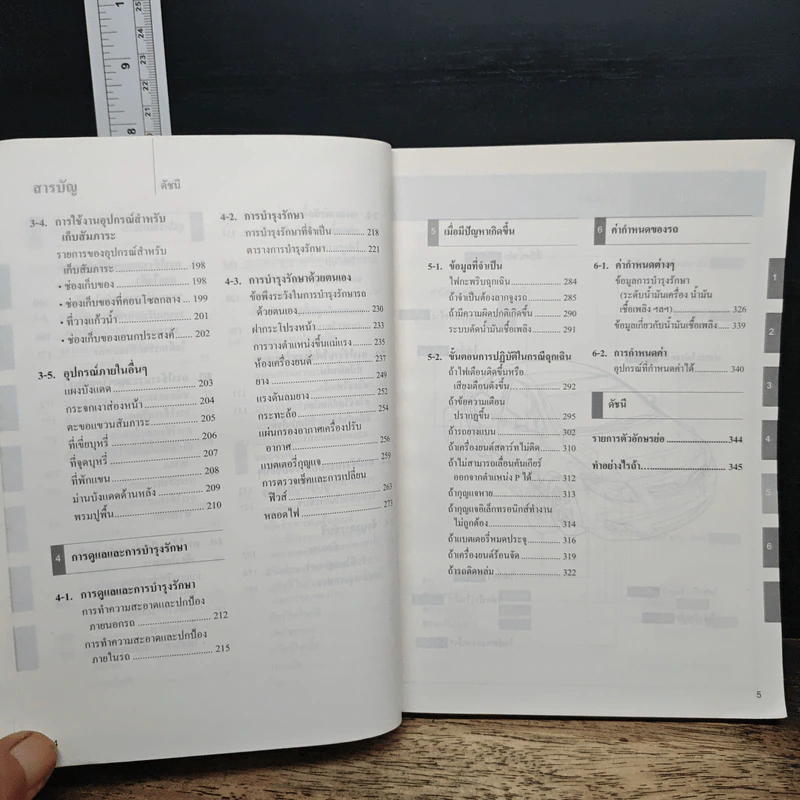 สารบัญ
ดัชนี
3-4. การใช้งานอุปกรณ์สำหรับ
เก็บสัมภาระ
รายการของอุปกรณ์สำหรับ
เก็บสัมภาระ 198
• ช่องเก็บของ 198
• ช่องเก็บของที่คอนโซลกลาง 199
• ที่วางแก้วน้ำ 201
• ช่องเก็บของเอนกประสงค์ 202
3-5. อุปกรณ์ภายในอื่นๆ
แผงบังแดด 203
กระจกเงาส่องหน้า 204
ตะขอแขวนสัมภาระ 205
ที่เขี่ยบุหรี่ 206
ที่จุดบุหรี่ 207
ที่พักแขน 208
ม่านบังแดดด้านหลัง 209
พรมปูพื้น 210
4 การดูแลและการบำรุงรักษา
4-1. การดูแลและการบำรุงรักษา
การทำความสะอาดและปกป้อง
ภายนอกรถ 212
การทำความสะอาดและปกป้อง
ภายในรถ 215
4-2. การบำรุงรักษา
การบำรุงรักษาที่จำเป็น 218
ตารางการบำรุงรักษา 221
4-3. การบำรุงรักษาด้วยตนเอง
ข้อพึงระวังในการบำรุงรักษารถ
ด้วยตนเอง 230
ฝากระโปรงหน้า 233
การวางตำแหน่งขึ้นแม่แรง 235
ห้องเครื่องยนต์ 237
ยาง 249
แรงดันลมยาง 252
กระทะล้อ 254
แผ่นกรองอากาศเครื่องปรับ
อากาศ 256
แบตเตอรี่กุญแจ 259
การตรวจเช็คและการเปลี่ยน
ฟิวส์ 263
หลอดไฟ 273
5 เมื่อมีปัญหาเกิดขึ้น
5-1. ข้อมูลที่จำเป็น
ไฟกะพริบฉุกเฉิน 284
ถ้าจำเป็นต้องลากจูงรถ 285
ถ้ามีความผิดปกติเกิดขึ้น 290
ระบบตัดน้ำมันเชื้อเพลิง 291
5-2. ขั้นตอนการปฏิบัติในกรณีฉุกเฉิน
ถ้าไฟเตือนติดขึ้นหรือ
เสียงเตือนดังขึ้น 292
ถ้าข้อความเตือน
ปรากฏขึ้น 295
ถ้ารถยางแบน 302
ถ้าเครื่องยนต์สตาร์ทไม่ติด 310
ถ้าไม่สามารถเลื่อนคันเกียร์
ออกจากตำแหน่ง P ได้ 312
ถ้ากุญแจหาย 313
ถ้ากุญแจอิเล็กทรอนิกส์ทำงาน
ไม่ถูกต้อง 314
ถ้าแบตเตอรี่หมดประจุ 316
ถ้าเครื่องยนต์ร้อนจัด 319
ถ้ารถติดหล่ม 322
6 ค่ากำหนดของรถ
6-1. ค่ากำหนดต่างๆ
ข้อมูลการบำรุงรักษา
(ระดับน้ำมันเครื่อง น้ำมัน
เชื้อเพลิง ฯลฯ) 326
ข้อมูลเกี่ยวกับน้ำมันเชื้อเพลิง 339
6-2. การกำหนดค่า
อุปกรณ์ที่กำหนดค่าได้ 340
ดัชนี
รายการตัวอักษรย่อ 344
ทำอย่างไรถ้า... 345
1
2
3
4
5
6
4
5